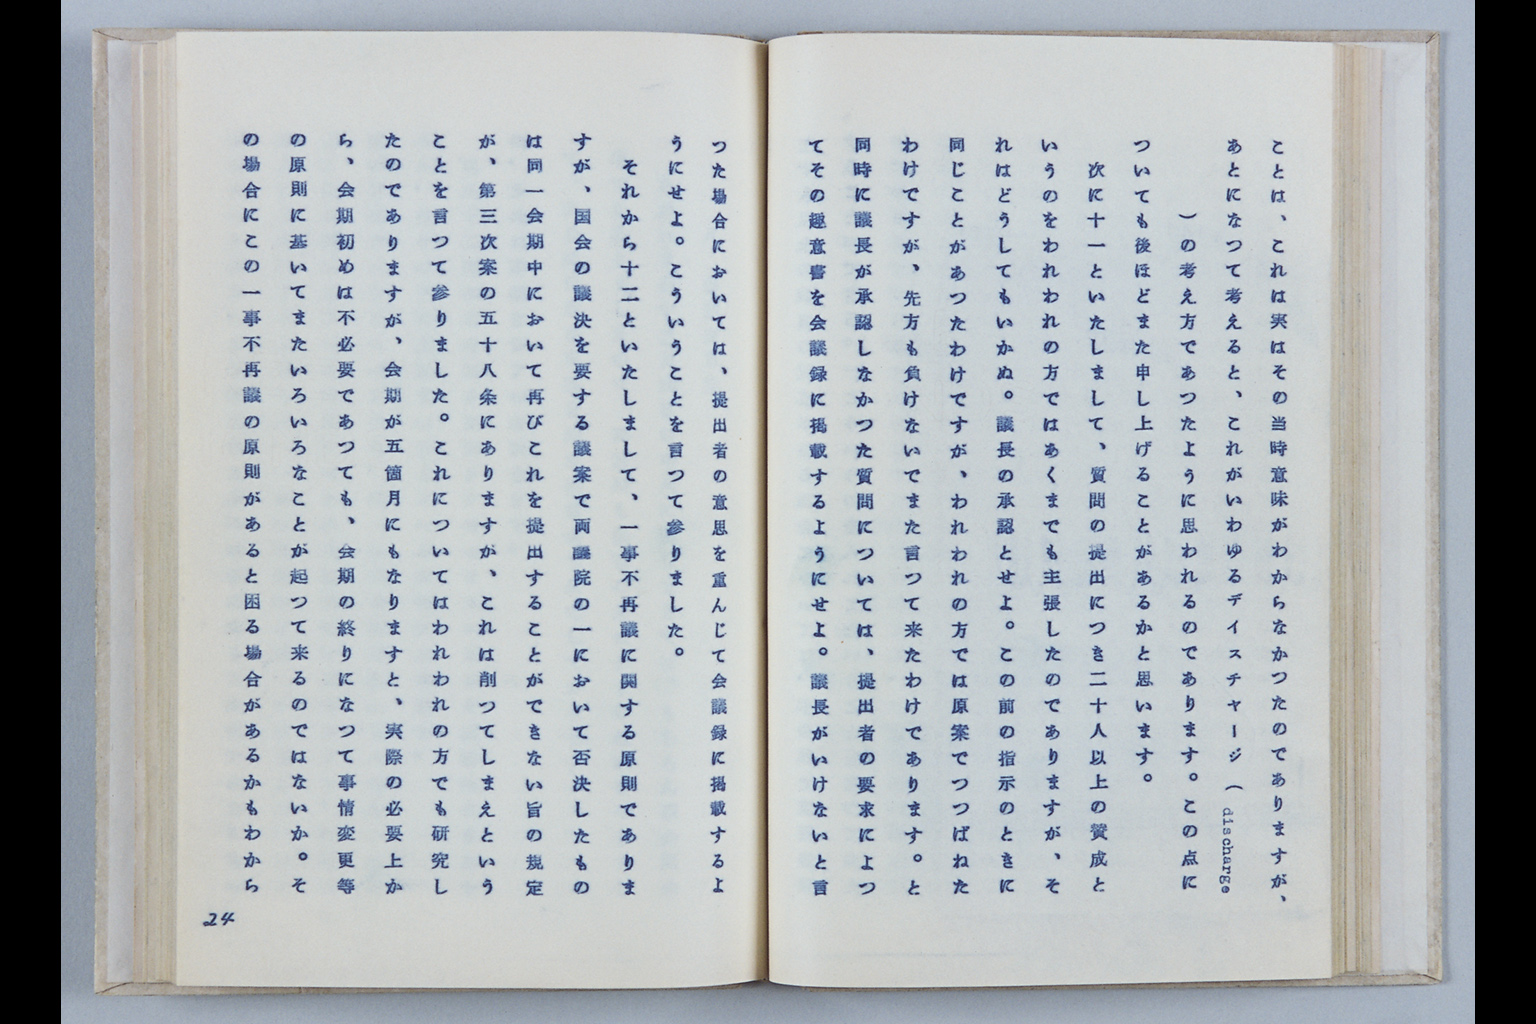 ことは、これは実はその当時意味がわからなかつたのでありますが、
あとになつて考えると、これがいわゆるデイスチャージ(discharge
)の考え方であつたように思われるのであります。この点に
ついても後ほどまた申し上げることがあるかと思います。
次に十一といたしまして、質問の提出につき二十人以上の賛成と
いうのをわれわれの方ではあくまでも主張したのでありますが、そ
れはどうしてもいかぬ。議長の承認とせよ。この前の指示のときに
同じことがあつたわけですが、われわれの方では原案でつつぱねた
わけですが、先方も負けないでまた言つて来たわけであります。と
同時に議長が承認しなかつた質問については、提出者の要求によつ
てその趣意書を会議録に掲載するようにせよ。議長がいけないと言
つた場合においては、提出者の意思を重んじて会議録に掲載するよ
うにせよ。こういうことを言つて参りました。
それから十二といたしまして、一事不再議に関する原則でありま
すが、国会の議決を要する議案で両議院の一において否決したもの
は同一会期中において再びこれを提出することができない旨の規定
が、第三次案の五十八条にありますが、これは削つてしまえという
ことを言つて参りました。これについてはわれわれの方でも研究し
たのでありますが、会期が五箇月にもなりますと、実際の必要上か
ら、会期初めは不必要であつても、会期の終りになつて事情変更等
の原則に基いてまたいろいろなことが起つて来るのではないか。そ
の場合にこの一事不再議の原則があると困る場合があるかもわから
24